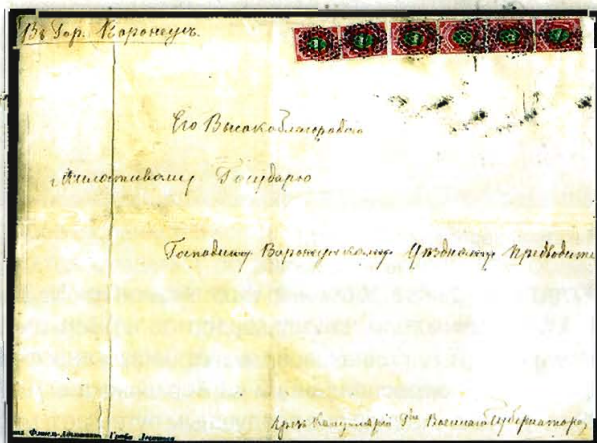 Въ Гор. Воронежъ.
Его Высокоблагородію
Милостивому Государю
Господину Воронежскому Уѣздному Предводите
Чрезъ Канцелярію Г-на Военнаго Губернатора